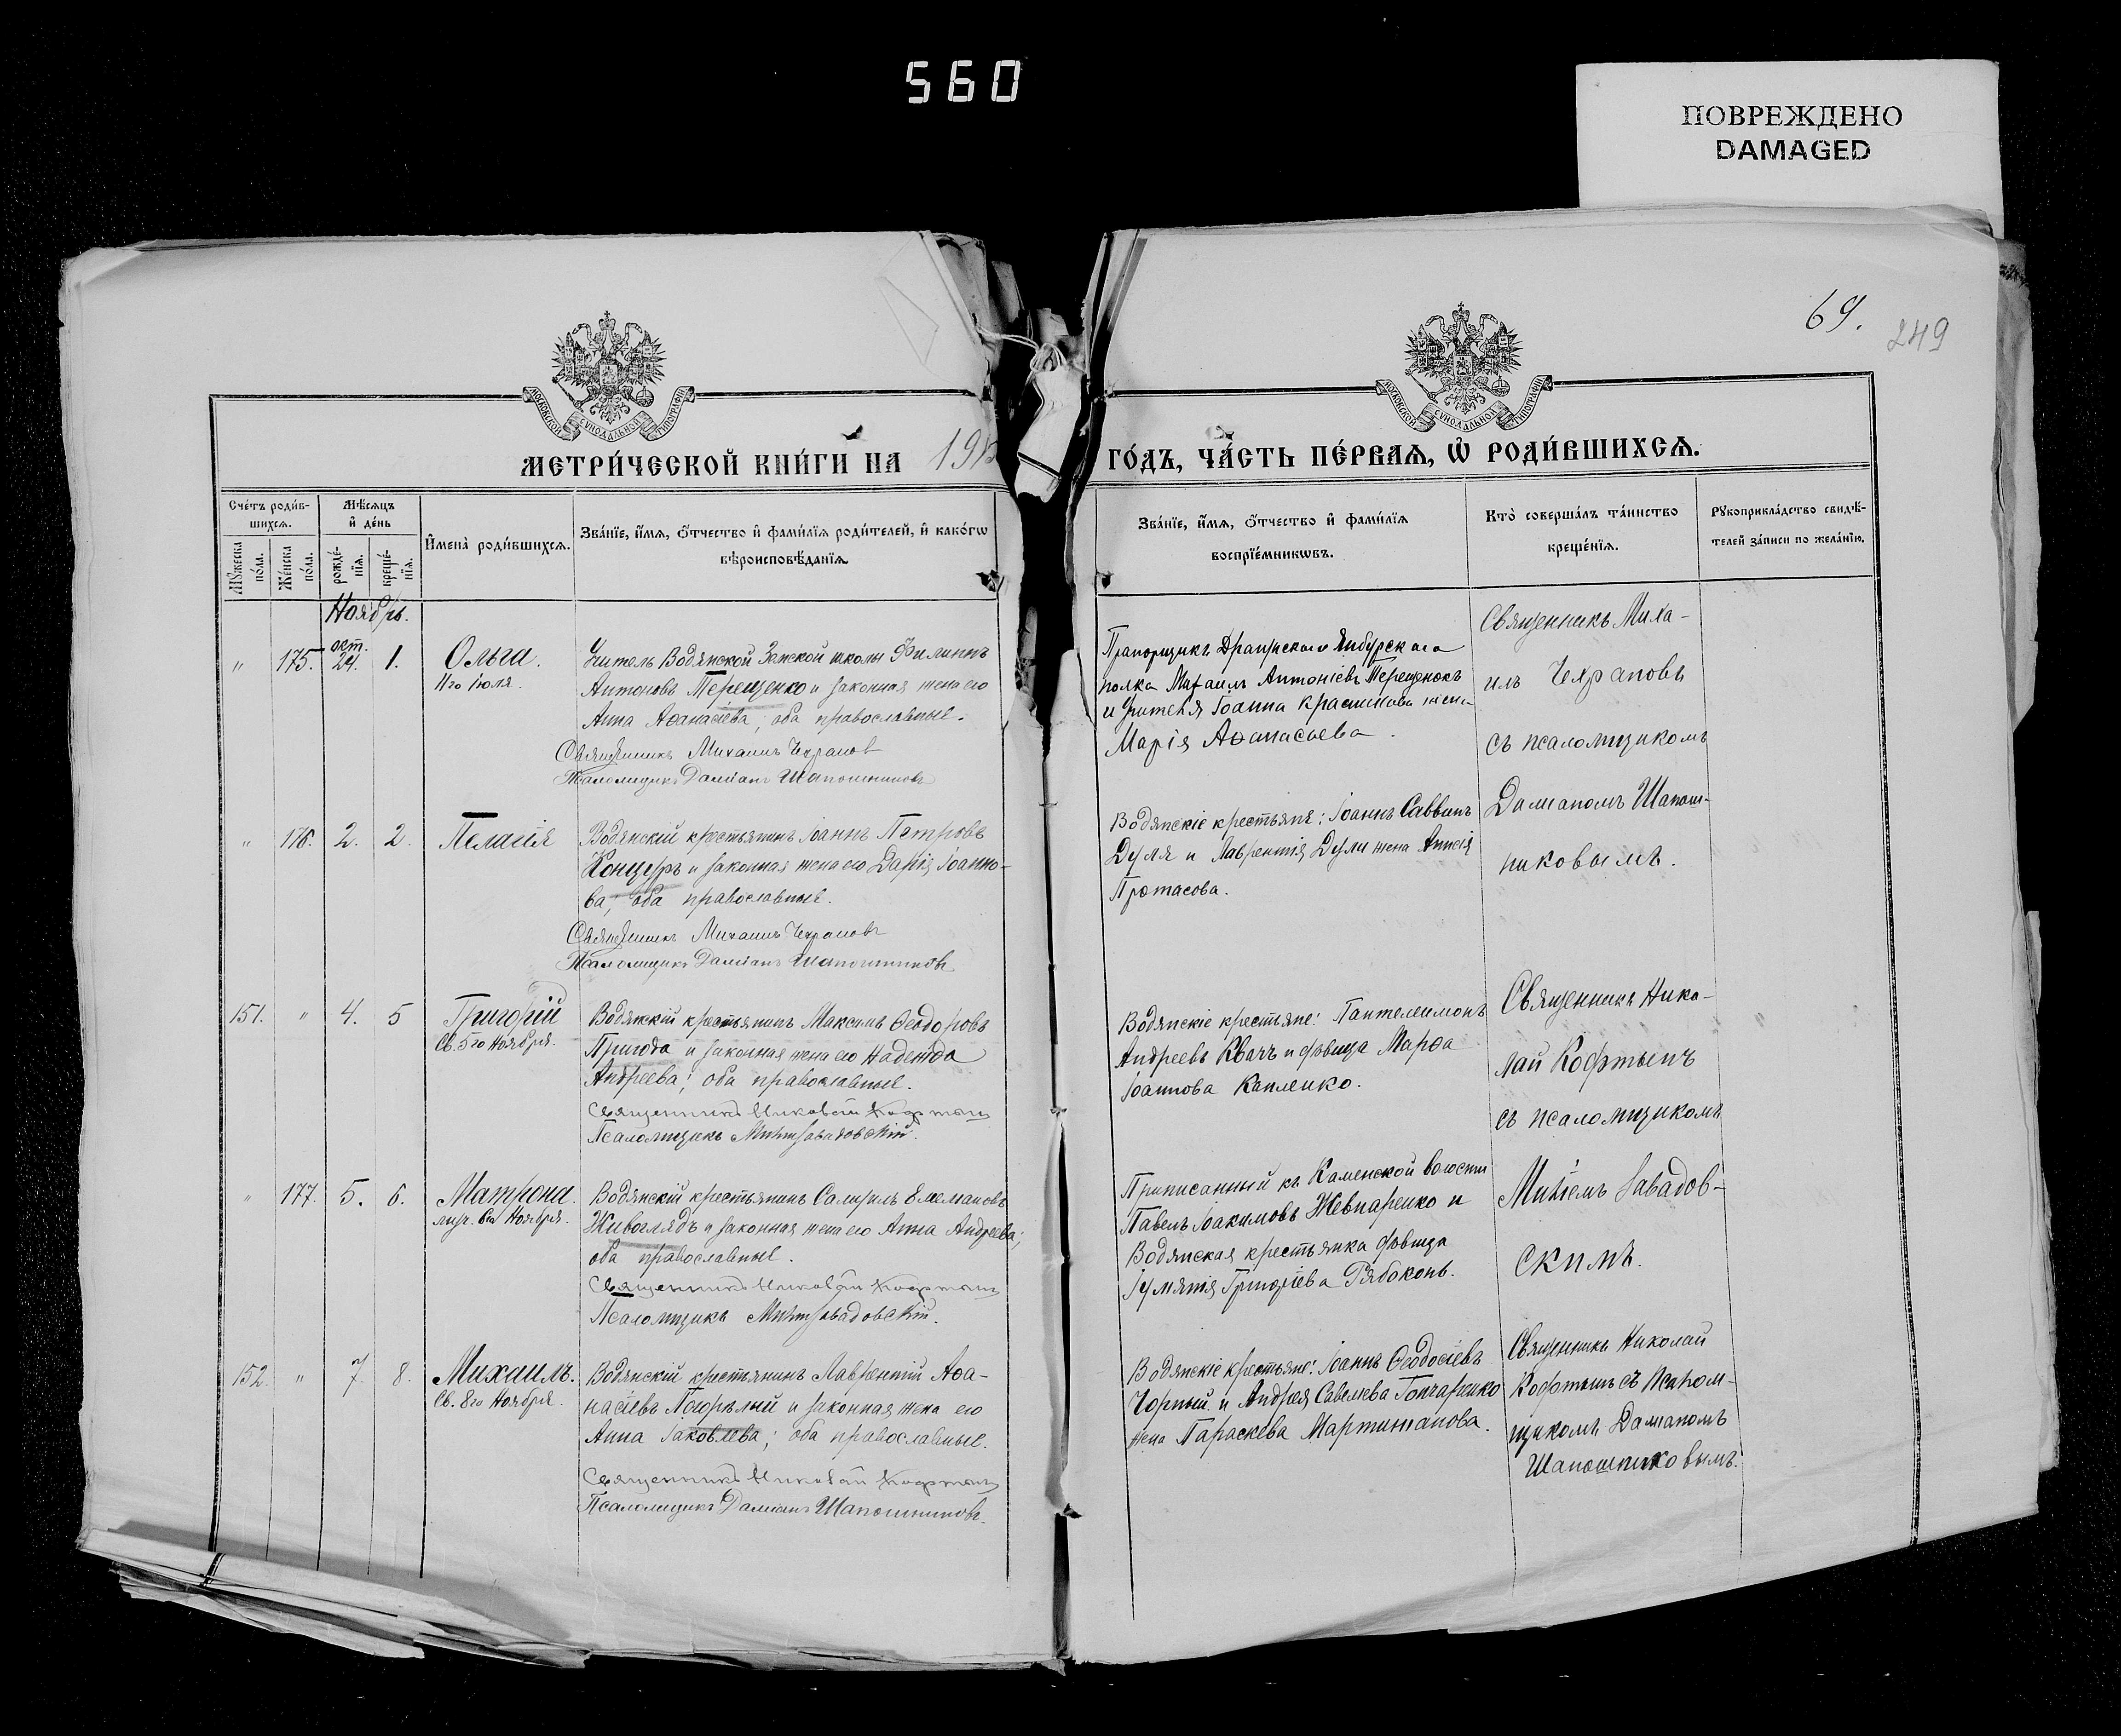 560
ПОВРЕЖДЕНО
DAMAGED
69.
249
МОСКОВСКОЙ СѴНОДАЛЬНОЙ ТИПОГРАФІИ
МОСКОВСКОЙ СѴНОДАЛЬНОЙ ТИПОГРАФІИ
МЕТРИ́ЧЕСКОЙ КНИ́ГИ НА
ГО́ДЪ, ЧА́СТЬ ПЕ́РВАѦ, Ѽ РОДИ́ВШИХСѦ.
Сче́тъ роди́в-
шихсѧ.
Мѣ́сѧцъ
и҆ де́нь
И҆мена̀ роди́вшихсѧ.
Зва́нїе, и҆́мѧ, ѻ҆́тчество и҆ фами́лїѧ роди́телей, и҆ како́гѡ
вѣроисповѣ́данїѧ.
Мꙋ́жеска
по́ла.
Же́нска
по́ла.
рожде́-
нїѧ.
креще́-
нїѧ.
Зва́нїе, и҆́мѧ, ѻ҆́тчество и҆ фами́лїѧ
воспрїе́мникѡвъ.
Кто̀ соверша́лъ та́инство
креще́нїѧ.
Рꙋкоприкла́дство свидѣ́-
телей за́писи по жела́нїю.
Ноябрь.
„ 175. окт. 24. 1. Ольга.
11го іюля.
Учитель Водянской Земской школы Филиппъ
Антоновъ Терещенко и законная жена его
Анна Аѳанасіева; оба православные.
Священникъ Михаилъ Чехрановъ
Псаломщикъ Даміанъ Шапошниковъ
Прапорщикъ Ямбурскаго
полка Михаилъ Антоніевъ Терещенко
и учителя Іоанна Красникова жена
Марія Аѳанасьева.
Священникъ Миха-
илъ Чехрановъ
съ псаломщикомъ
Даміаномъ Шапош-
никовымъ.
„ 176. 2. 2. Пелагія
Водянскій крестьянинъ Іоаннъ Петровъ
Концуръ и законная жена его Дарія Іоанно-
ва; оба православные.
Священникъ Михаилъ Чехрановъ
Псаломщикъ Даміанъ Шапошниковъ
Водянскіе крестьяне: Іоаннъ Саввинъ
Дуля и Лаврентія Дули жена
Протасова.
151. „ 4. 5 Григорій
Св. 5го Ноября.
Водянскій крестьянинъ Максимъ Ѳеодоровъ
Пригода и законная жена его Надежда
Андреева; оба православные.
Священникъ Николай Кофтынъ
Псаломщикъ Завадовскій.
Водянскіе крестьяне: Пантелимонъ
Андреевъ Квачъ и дѣвица Марѳа
Іоаннова Капленко.
Священникъ Нико-
лай Кофтынъ
съ псаломщикомъ
Завадов-
скимъ.
„ 177. 5. 6. Матрона.
муч. 6го Ноября.
Водянскій крестьянинъ Емеліановъ
Живоглядъ и законная жена его Анна Андреева;
оба православные.
Священникъ Николай Кофтынъ
Псаломщикъ Завадовскій.
Приписанный къ Каменской волости
Павелъ Іоакимовъ Жевнаренко и
Водянская крестьянка дѣвица
Григоріева Рябоконь.
152. „ 7. 8. Михаилъ.
Св. 8го Ноября.
Водянскій крестьянинъ Лаврентій Аѳа-
насіевъ Погорѣлый и законная жена его
Анна Іаковлева; оба православные.
Священникъ Николай Кофтынъ
Псаломщикъ Даміанъ Шапошниковъ.
Водянскіе крестьяне: Іоаннъ Ѳеодосіевъ
Чорный и Андрея Савелева Гончаренко
жена Параскева Мартиніанова.
Священникъ Николай
Кофтынъ съ псалом-
щикомъ Даміаномъ
Шапошниковымъ.